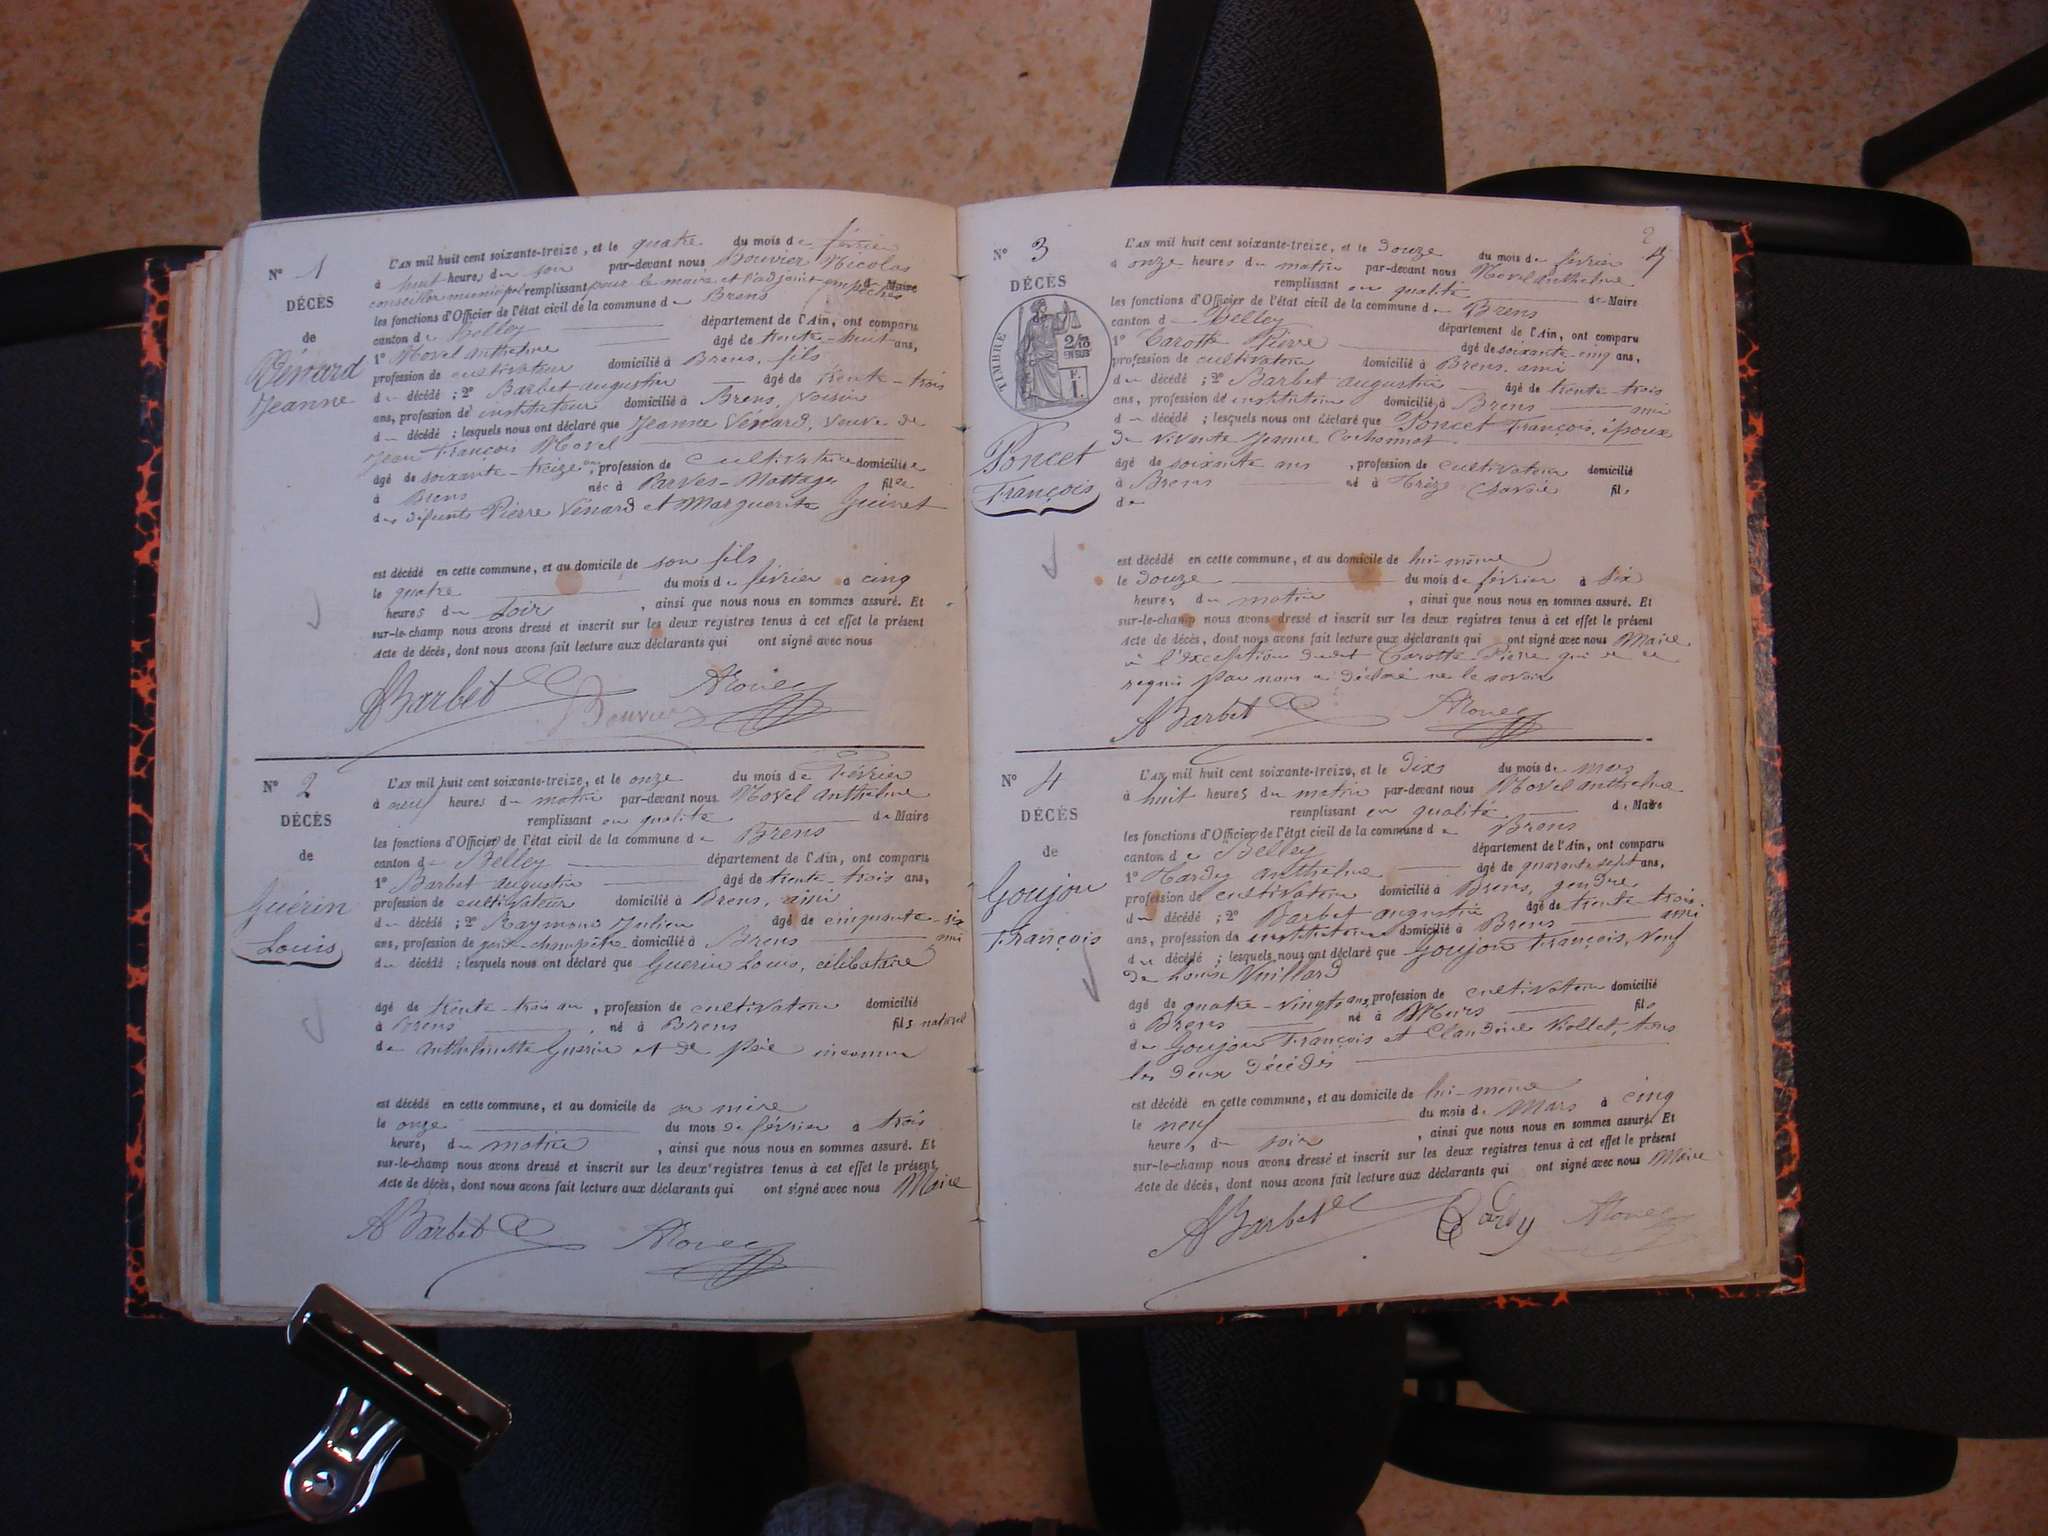 N° 1
DÉCÈS
de
Vénard
Jeanne
L'AN mil huit cent soixante-treize, et le quatre du mois de février
à huit heures du soir par-devant nous Bouvier Nicolas
conseiller municipal remplissant pour le maire et l'adjoint empêchés de Maire
les fonctions d'Officier de l'état civil de la commune de Brens
canton de Belley département de l'Ain, ont comparu
1° Hovel anthelme âgé de trente-huit ans,
profession de cultivateur domicilié à Brens, fils
du décédé ; 2° Barbet augustin âgé de trente-trois
ans, profession d'instituteur domicilié à Brens, voisin
d décédé ; lesquels nous ont déclaré que Jeanne Vénard, veuve de
Jean François Hovel
âgé de soixante-treize ans, profession de cultivatrice domiciliée
à Brens née à Parves-Nattages fille
des défunts Pierre Vénard et Marguerite Guinet
est décédé en cette commune, et au domicile de son fils
le quatre du mois de février à cinq
heures du soir, ainsi que nous nous en sommes assuré. Et
sur-le-champ nous avons dressé et inscrit sur les deux registres tenus à cet effet le présent
Acte de décès, dont nous avons fait lecture aux déclarants qui ont signé avec nous
A Barbet Bouvier
N° 2
DÉCÈS
de
Guérin
Louis
L'AN mil huit cent soixante-treize, et le onze du mois de février
à neuf heures du matin par-devant nous Hovel anthelme
remplissant en qualité de Maire
les fonctions d'Officier de l'état civil de la commune de Brens
canton de Belley département de l'Ain, ont comparu
1° Barbet augustin âgé de trente-trois ans,
profession de cultivateur domicilié à Brens, ami
du décédé ; 2° Raymond Julien âgé de cinquante-six
ans, profession de garde-champêtre domicilié à Brens ami
du décédé ; lesquels nous ont déclaré que Guerin Louis, célibataire
âgé de trente-trois ans, profession de cultivateur domicilié
à Brens né à Brens fils naturel
de anthelmette Guerin et de père inconnu
est décédé en cette commune, et au domicile de sa mère
le onze du mois de février à trois
heures du matin, ainsi que nous nous en sommes assuré. Et
sur-le-champ nous avons dressé et inscrit sur les deux registres tenus à cet effet le présent
Acte de décès, dont nous avons fait lecture aux déclarants qui ont signé avec nous Maire
A Barbet
2
N° 3
DÉCÈS
TIMBRE
2/10
EN SUS
F.
1.
Poncet
François
L'AN mil huit cent soixante-treize, et le douze du mois de février
à onze heures du matin par-devant nous Hovel anthelme
remplissant en qualité de Maire
les fonctions d'Officier de l'état civil de la commune de Brens
canton d Belley département de l'Ain, ont comparu
1° Carotte Pierre âgé de soixante-cinq ans,
profession de cultivateur domicilié à Brens, ami
du décédé ; 2° Barbet augustin âgé de trente-trois
ans, profession d'instituteur domicilié à Brens ami
d décédé ; lesquels nous ont déclaré que Poncet François, époux
de vivante Jeanne Cochonnat
âgé de soixante ans, profession de cultivateur domicilié
à Brens né à Trèze Savoie fils
de
est décédé en cette commune, et au domicile de lui-même
le douze du mois de février à six
heures du matin, ainsi que nous nous en sommes assuré. Et
sur-le-champ nous avons dressé et inscrit sur les deux registres tenus à cet effet le présent
Acte de décès, dont nous avons fait lecture aux déclarants qui ont signé avec nous Maire
à l'exception dudit Carotte Pierre qui de ce
requis par nous a déclaré ne le savoir
A Barbet
N° 4
DÉCÈS
de
Goujon
François
L'AN mil huit cent soixante-treize, et le dix du mois de mars
à huit heures du matin par-devant nous Hovel anthelme
remplissant en qualité de Maire
les fonctions d'Officier de l'état civil de la commune de Brens
canton de Belley département de l'Ain, ont comparu
1° Hardy anthelme âgé de quarante sept ans,
profession de cultivateur domicilié à Brens, gendre
du décédé ; 2° Barbet augustin âgé de trente-trois
ans, profession d'instituteur domicilié à Brens ami
du décédé ; lesquels nous ont déclaré que Goujon François, veuf
de Louise Vuillard
âgé de quatre-vingts ans, profession de cultivateur domicilié
à Brens né à Murs fils
de Goujon François et Claudine Viollet, tous
les deux décédés
est décédé en cette commune, et au domicile de lui-même
le neuf du mois de Mars à cinq
heures du soir, ainsi que nous nous en sommes assuré. Et
sur-le-champ nous avons dressé et inscrit sur les deux registres tenus à cet effet le présent
Acte de décès, dont nous avons fait lecture aux déclarants qui ont signé avec nous Maire
A Barbet Hardy